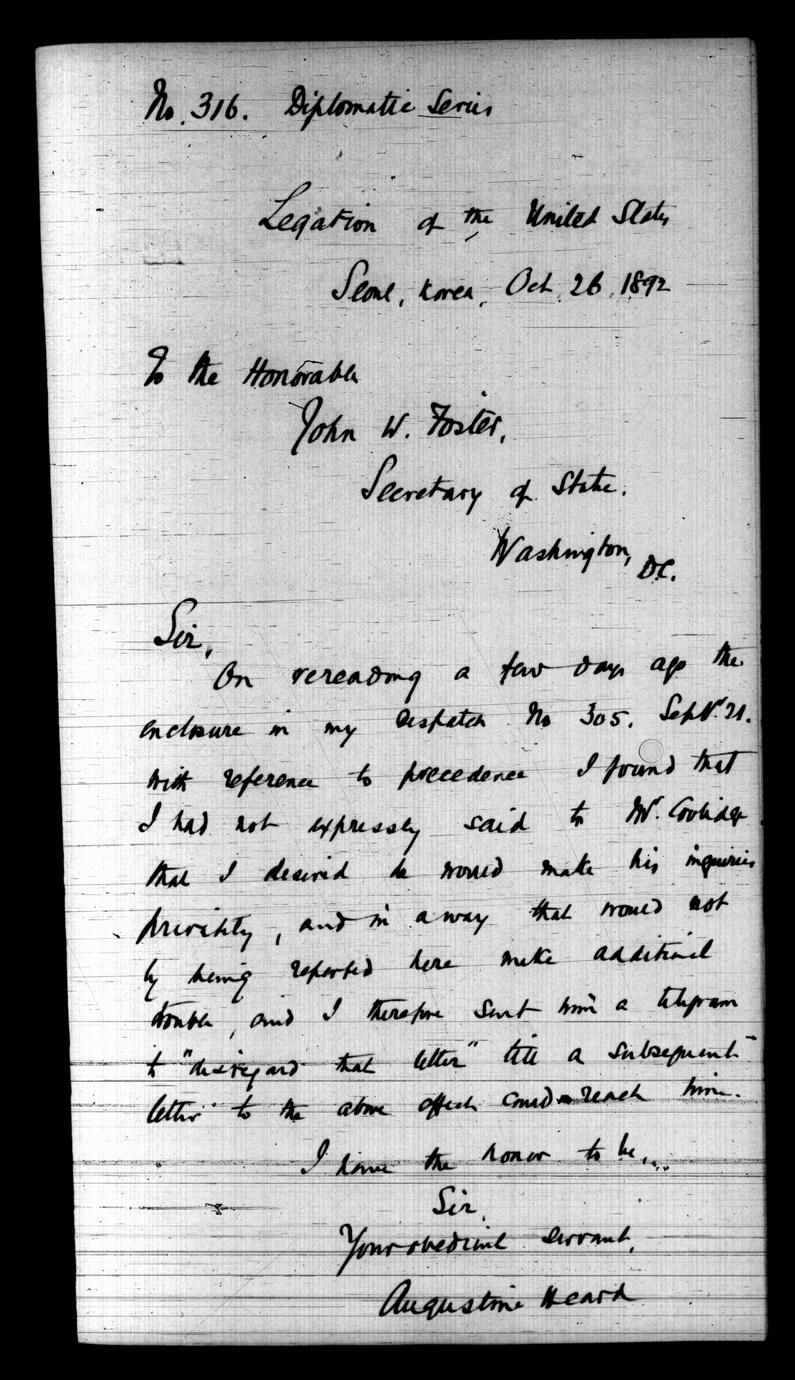 No. 316. Diplomatic Series
Legation of the United States
Seoul, Korea, Oct. 26, 1892
To the Honorable
John W. Foster,
Secretary of State.
Washington, D.C.
Sir,
On rereading a few days ago the
enclosure in my Despatch No 305. Sept. 21.
with reference to precedence I found that
I had not expressly said to Mr. Coolidge
that I desired he would make his inquiries
privately, and in a way that would not
by being reported here make additional
trouble, and I therefore sent him a telegram
to "disregard that letter" till a subsequent
letter to the above effect could reach him.
I have the honor to be,...
Sir,
Your obedient servant,
Augustine Heard